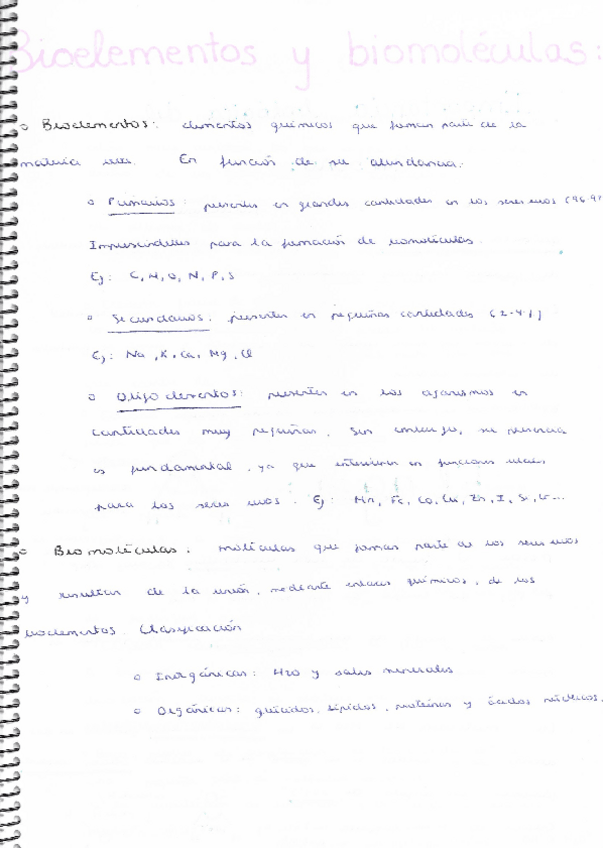 Bioelementos y biomoléculas:
o Bioelementos: elementos químicos que forman parte de la
materia viva. En función de su abundancia:
o Primarios: presentes en grandes cantidades en los seres vivos (96-9
Imprescindibles para la formación de biomoléculas.
Ej: C, H, O, N, P, S
o Secundarios: presentes en pequeñas cantidades (2-4%)
Ej: Na, K, Ca, Mg, Cl
o Oligoelementos: presentes en los organismos en
cantidades muy pequeñas. Sin embargo, su presencia
es fundamental, ya que intervienen en funciones vitales
para los seres vivos. Ej: Mn, Fe, Co, Cu, Zn, I, Si, Cr...
o Biomoléculas: moléculas que forman parte de los seres vivos
y resultan de la unión, mediante enlaces químicos, de los
bioelementos. Clasificación
o Inorgánicas: H2O y sales minerales
o Orgánicas: glúcidos, lípidos, proteínas y ácidos nucleicos.